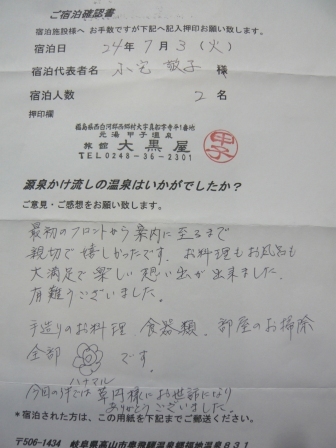 ご宿泊確認書
宿泊施設様へ お手数ですが下記へ記入押印お願い致します。
宿泊日 24年7月3(火)
宿泊代表者名 小宮 敬子 様
宿泊人数 2名
押印欄
福島県西白河郡西郷村大字真船字寺平1番地
元湯 甲子温泉
旅館 大黒屋
TEL0248-36-2301
甲子
源泉かけ流しの温泉はいかがでしたか?
ご意見・ご感想をお願い致します。
最初のフロントから案内に至るまで
親切で嬉しかったです。お料理もお風呂も
大満足で楽しい想い出が出来ました。
有難うございました。
手造りのお料理、食器類、部屋のお掃除
全部 です。
ハナマル
では 草円様にお世話になり
ありがとうございました。
*宿泊された方は、この用紙を下記までご郵送ください。
〒506-1434 岐阜県高山市奥飛騨温泉郷福地温泉831